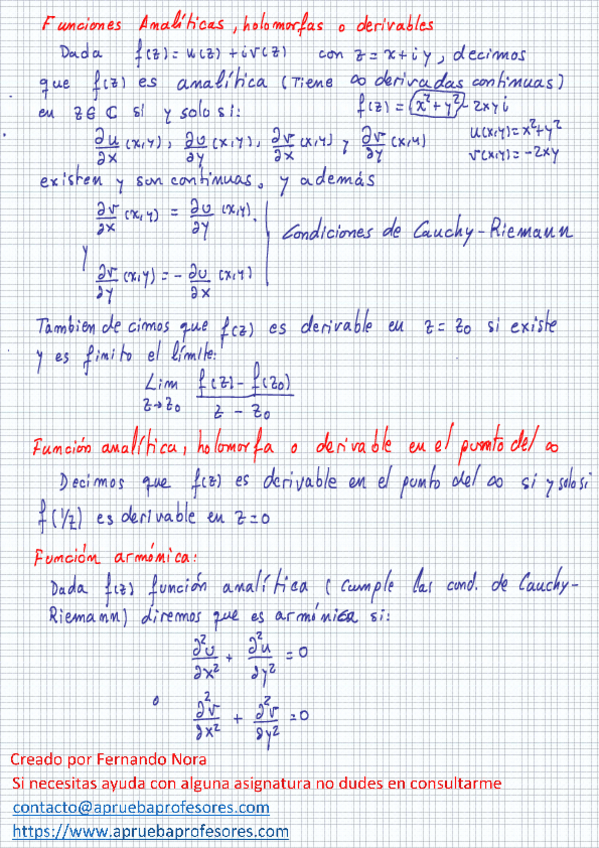 Funciones Analíticas, holomorfas o derivables
Dada f(z) = u(z) + i v(z) con z = x + i y, decimos
que f(z) es analítica (tiene ∞ derivadas continuas)
en z ∈ ℂ si y solo si:
f(z) = (x² + y²) - 2xy i
∂u/∂x (x,y), ∂u/∂y (x,y), ∂v/∂x (x,y) y ∂v/∂y (x,y)
u(x,y) = x² + y²
v(x,y) = -2xy
existen y son continuas. y además
∂v/∂x (x,y) = ∂u/∂y (x,y).
y
∂v/∂y (x,y) = - ∂u/∂x (x,y)
Condiciones de Cauchy-Riemann
Tambien decimos que f(z) es derivable en z = z₀ si existe
y es finito el límite:
Lim z→z₀ (f(z) - f(z₀)) / (z - z₀)
Función analítica, holomorfa o derivable en el punto del ∞
Decimos que f(z) es derivable en el punto del ∞ si y solo si
f(1/z) es derivable en z = 0
Función armónica:
Dada f(z) función analítica (cumple las cond. de Cauchy-
Riemann) diremos que es armónica si:
∂²u/∂x² + ∂²u/∂y² = 0
o
∂²v/∂x² + ∂²v/∂y² = 0
Creado por Fernando Nora
Si necesitas ayuda con alguna asignatura no dudes en consultarme
contacto@apruebaprofesores.com
https://www.apruebaprofesores.com